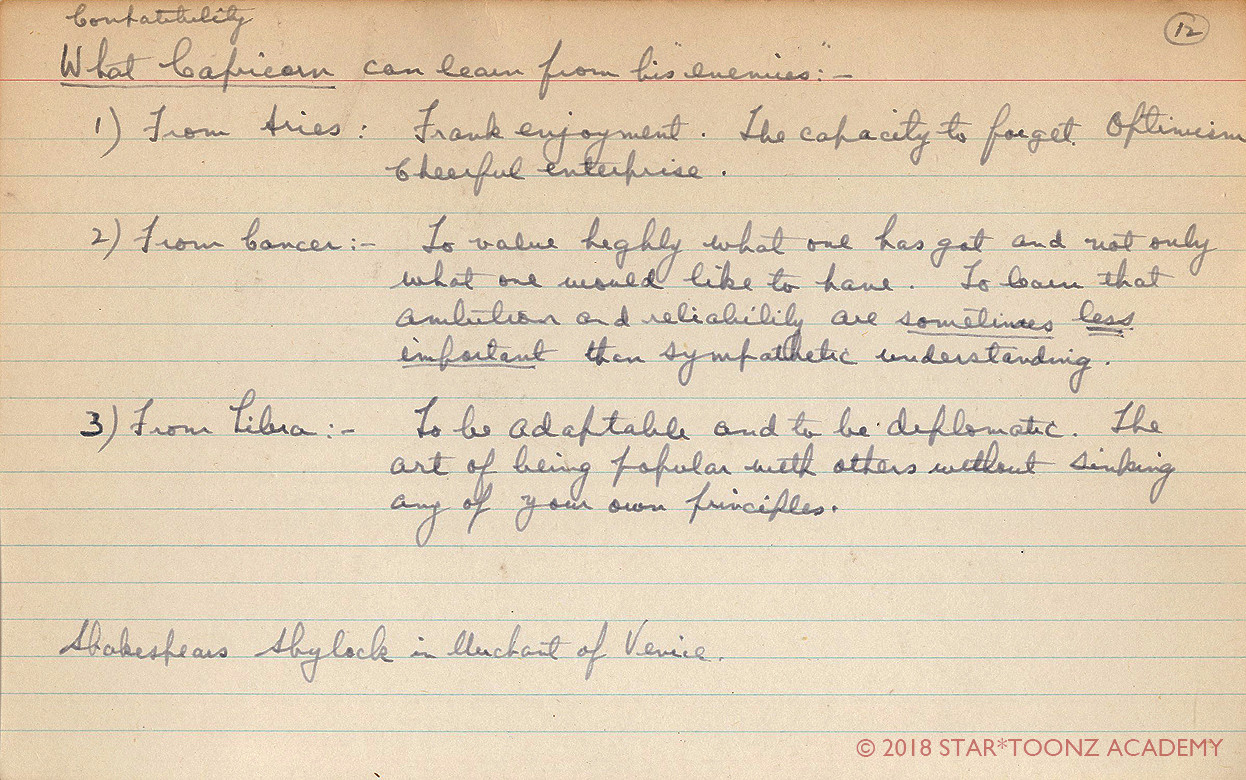 Compatibility
12
What Capricorn can learn from his "enemies":-
1) From Aries: Frank enjoyment. The capacity to forget. Optimism
Cheerful enterprise.
2) From Cancer:- To value highly what one has got and not only
what one would like to have. To learn that
ambition and reliability are sometimes less
important than sympathetic understanding.
3) From Libra:- To be adaptable and to be diplomatic. The
art of being popular with others without sinking
any of your own principles.
Shakespears Shylock in Merchant of Venice.
© 2018 STAR*TOONZ ACADEMY